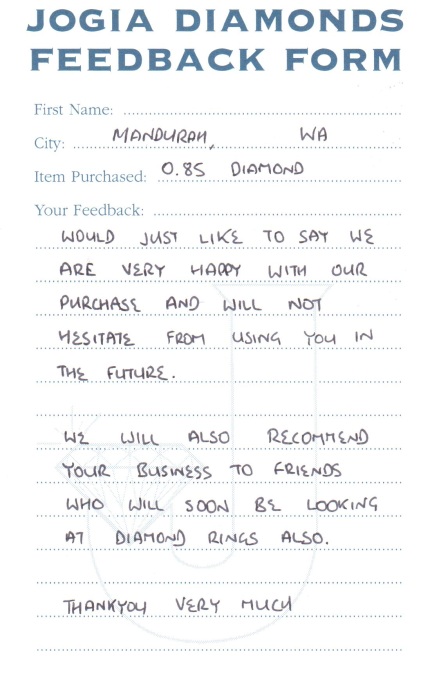 JOGIA DIAMONDS
FEEDBACK FORM
First Name:
City: MANDURAH, WA
Item Purchased: 0.85 DIAMOND
Your Feedback:
WOULD JUST LIKE TO SAY WE
ARE VERY HAPPY WITH OUR
PURCHASE AND WILL NOT
HESITATE FROM USING YOU IN
THE FUTURE.
WE WILL ALSO RECOMMEND
YOUR BUSINESS TO FRIENDS
WHO WILL SOON BE LOOKING
AT DIAMOND RINGS ALSO.
THANKYOU VERY MUCH